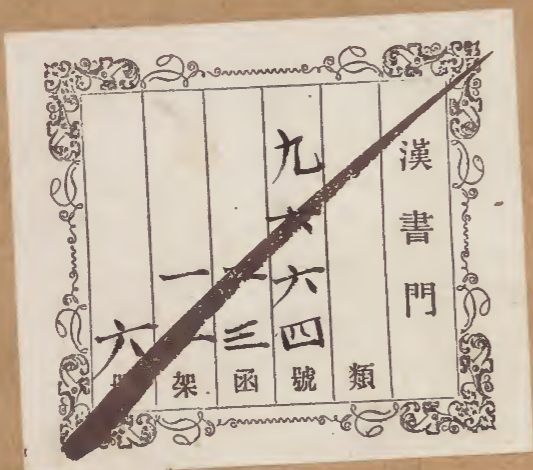 漢書門
類
九六六四號
三函
一架
六